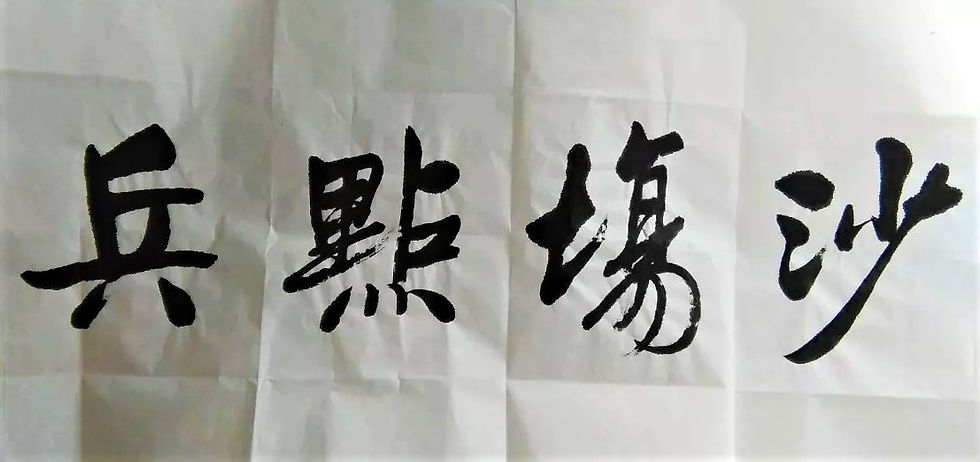 沙場點兵